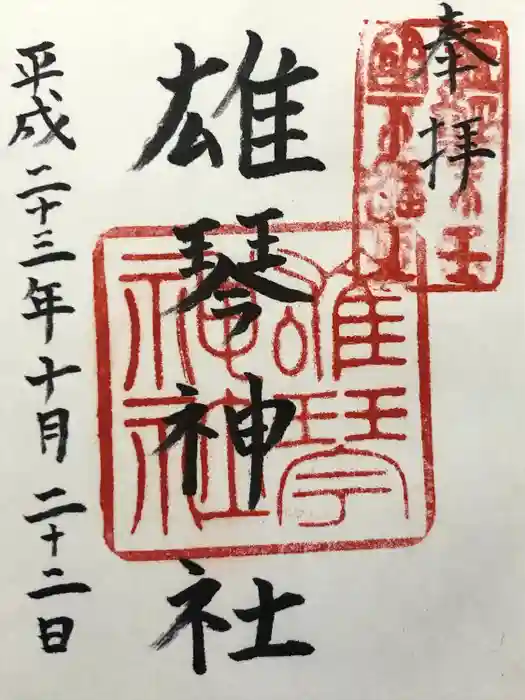 奉拝
雄琴神社
平成二十三年十月二十二日
雄琴神社